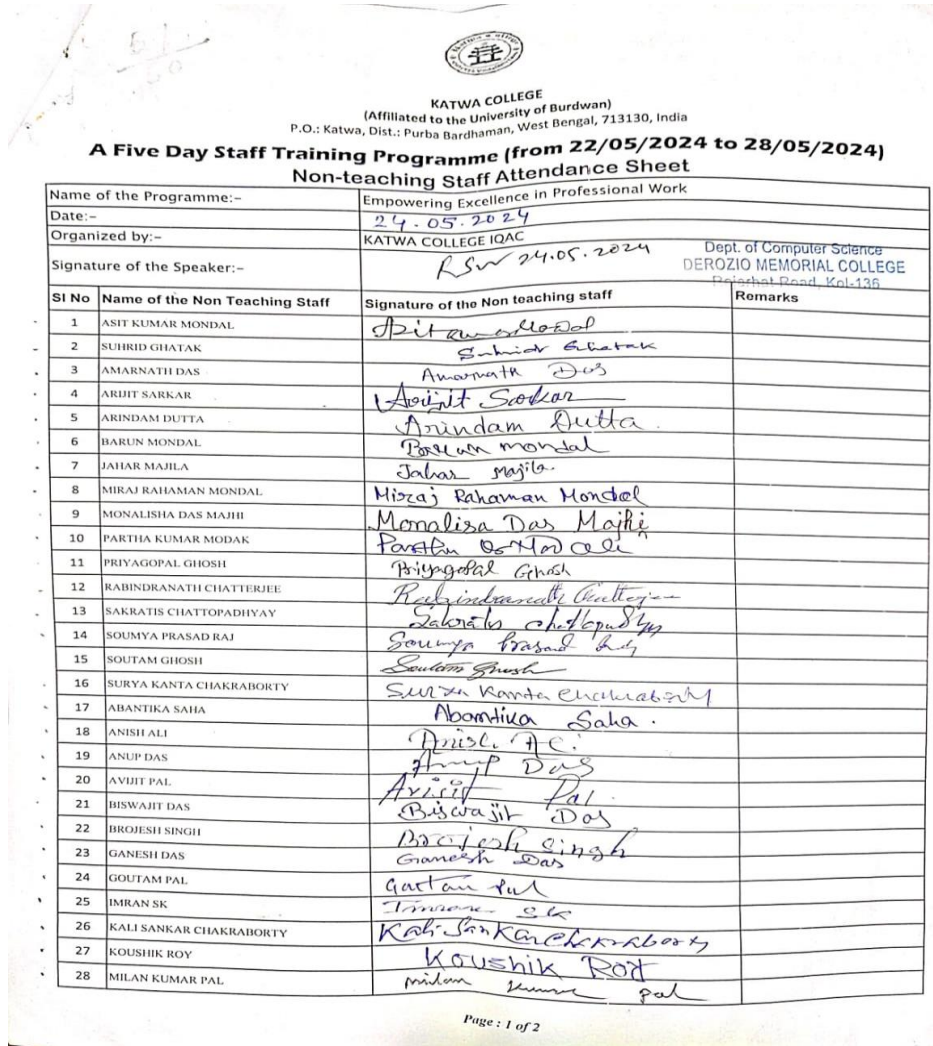 KATWA COLLEGE
(Affiliated to the University of Burdwan)
P.O.: Katwa, Dist.: Purba Bardhaman, West Bengal, 713130, India
A Five Day Staff Training Programme (from 22/05/2024 to 28/05/2024)
Non-teaching Staff Attendance Sheet
Name of the Programme:– Empowering Excellence in Professional Work
Date:– 24.05.2024
Organized by:– KATWA COLLEGE IQAC
Signature of the Speaker:– 24.05.2024
Dept. of Computer Science
DEROZIO MEMORIAL COLLEGE
Rajarhat Road, Kol-136
Sl No Name of the Non Teaching Staff Signature of the Non teaching staff Remarks
1 ASIT KUMAR MONDAL
2 SUHRID GHATAK Suhrid Ghatak
3 AMARNATH DAS Amarnath Das
4 ARIJIT SARKAR Arijit Sarkar
5 ARINDAM DUTTA Arindam Dutta
6 BARUN MONDAL Barun mondal
7 JAHAR MAJILA Jahar Majila
8 MIRAJ RAHAMAN MONDAL Miraj Rahaman Mondal
9 MONALISHA DAS MAJHI Monalisa Das Majhi
10 PARTHA KUMAR MODAK
11 PRIYAGOPAL GHOSH Priyagopal Ghosh
12 RABINDRANATH CHATTERJEE Rabindranath Chatterjee
13 SAKRATIS CHATTOPADHYAY
14 SOUMYA PRASAD RAJ Soumya Prasad Raj
15 SOUTAM GHOSH Soutam Ghosh
16 SURYA KANTA CHAKRABORTY Surya Kanta Chakraborty
17 ABANTIKA SAHA Abantika Saha.
18 ANISH ALI
19 ANUP DAS Anup Das
20 AVIJIT PAL Avijit Pal
21 BISWAJIT DAS Biswajit Das
22 BROJESH SINGH Brojesh Singh
23 GANESH DAS Ganesh Das
24 GOUTAM PAL
25 IMRAN SK Imran Sk
26 KALI SANKAR CHAKRABORTY Kali Sankar Chakraborty
27 KOUSHIK ROY Koushik Roy
28 MILAN KUMAR PAL milan kumar pal
Page : 1 of 2